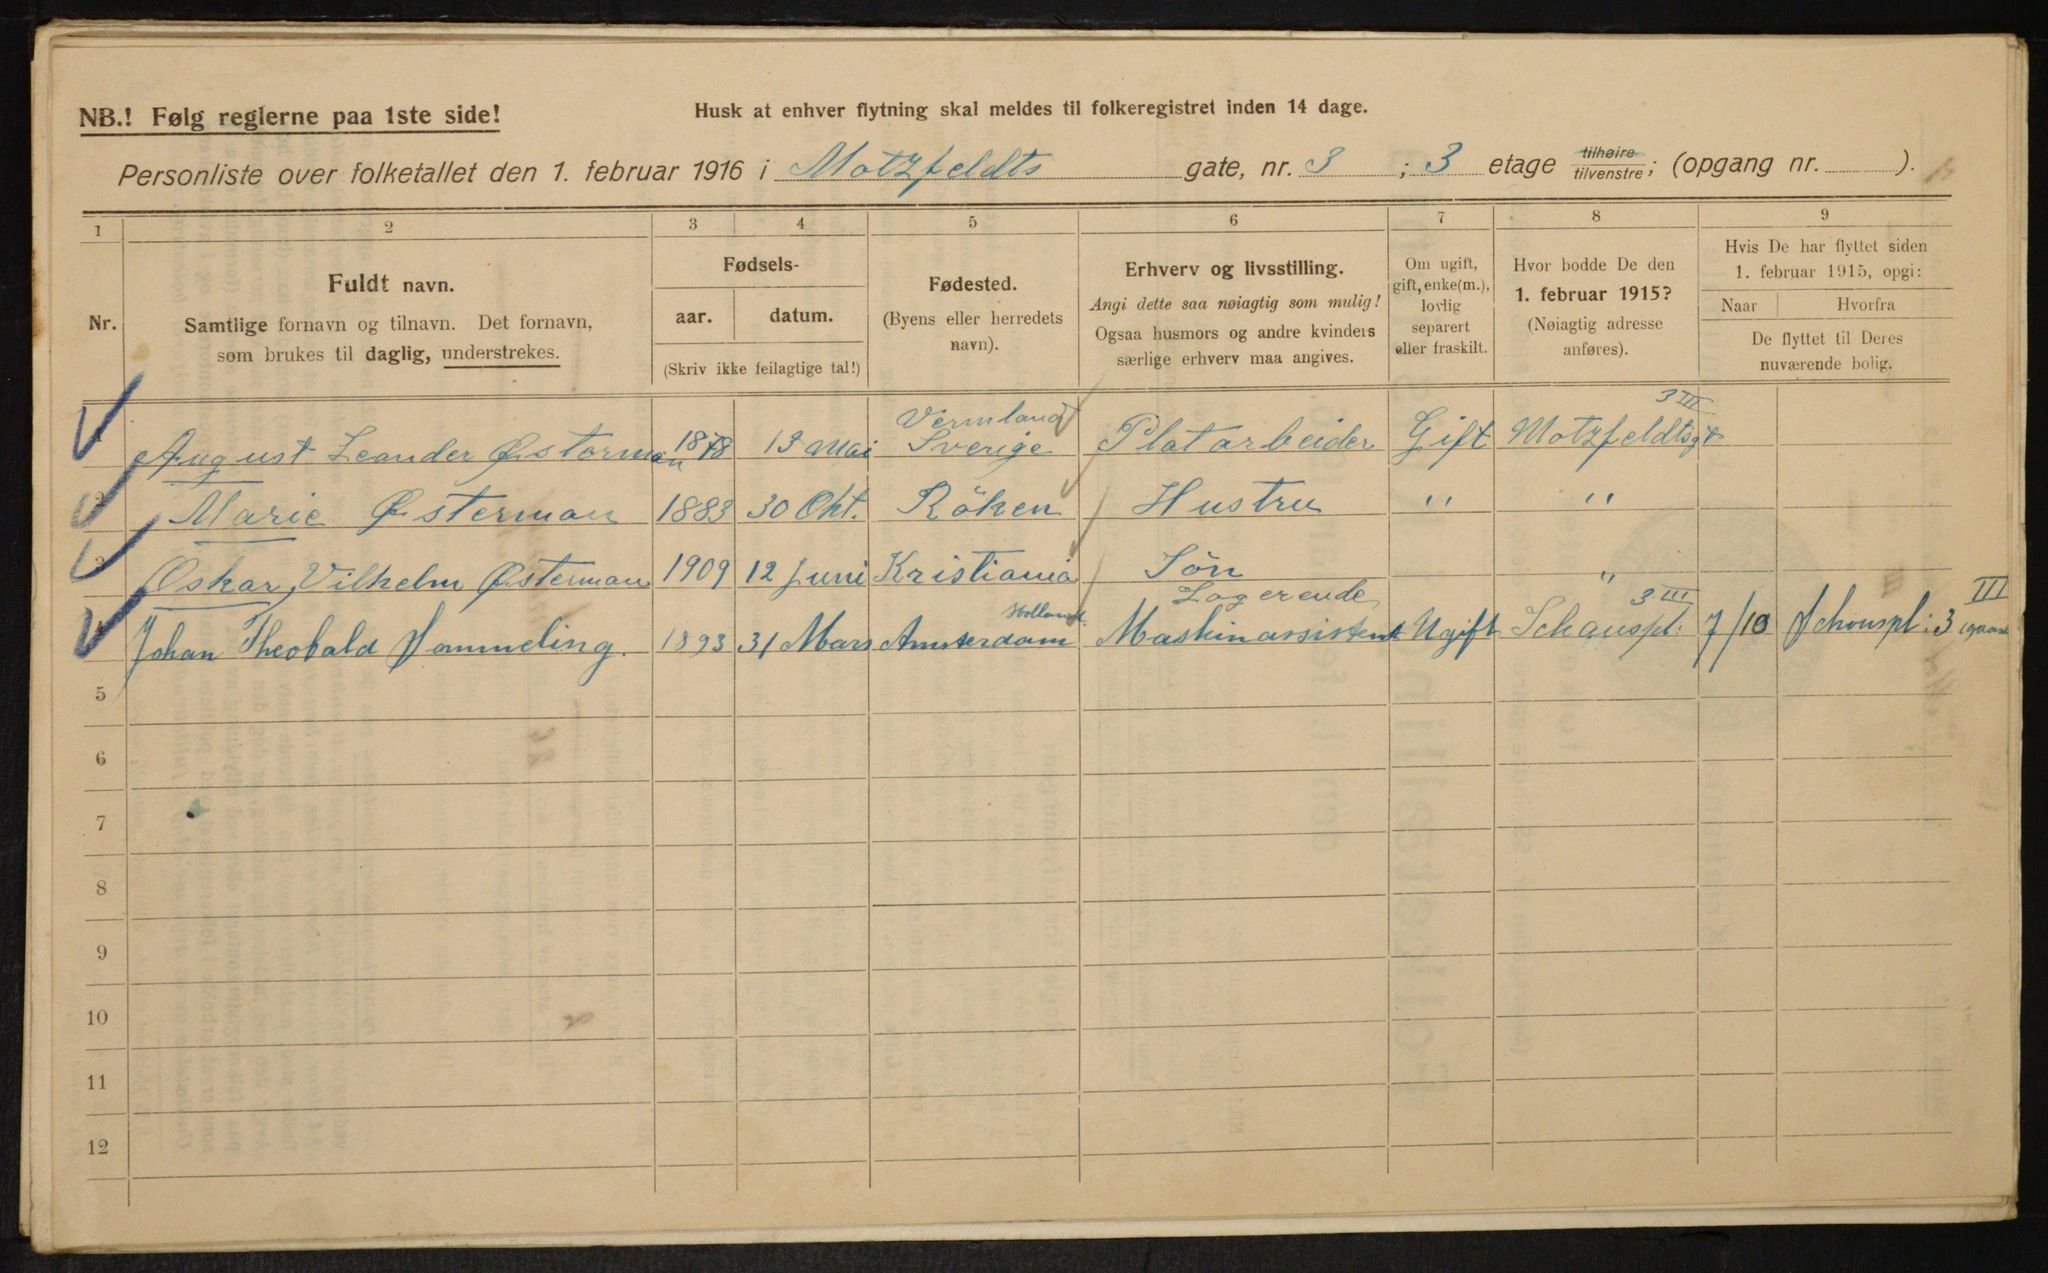 NB.! Følg reglerne paa 1ste side!
Husk at enhver flytning skal meldes til folkeregistret inden 14 dage.
Personliste over folketallet den 1. februar 1916 i Motzfeldts gate, nr. 3 ; 3 etage tilhøire tilvenstre; (opgang nr. ).
1 2 3 4 5 6 7 8 9
Nr.
Fuldt navn.
Samtlige fornavn og tilnavn. Det fornavn,
som brukes til daglig, understrekes.
Fødsels-
aar. datum.
(Skriv ikke feilagtige tal!)
Fødested.
(Byens eller herredets
navn).
Erhverv og livsstilling.
Angi dette saa nøiagtig som mulig!
Ogsaa husmors og andre kvinders
særlige erhverv maa angives.
Om ugift,
gift, enke(m.),
lovlig
separert
eller fraskilt.
Hvor bodde De den
1. februar 1915?
(Nøiagtig adresse
anføres).
Hvis De har flyttet siden
1. februar 1915, opgi:
Naar Hvorfra
De flyttet til Deres
nuværende bolig.
Vermland 3 III
August Leander Østerman 1878 Mai Sverige Platarbeider Gift Motzfeldtsgt
2 Marie Østerman 1883 30 Okt. Röken Hustru " "
3 Oskar, Vilhelm Østerman 1909 12 Juni Kristiania Sön "
Holland. Logerende 3 III III
Johan Theobald 1893 31 Mars Amsterdam Maskinassistent Ugift Schouspl: 7/10 Schouspl: 3
5
6
7
8
9
10
11
12